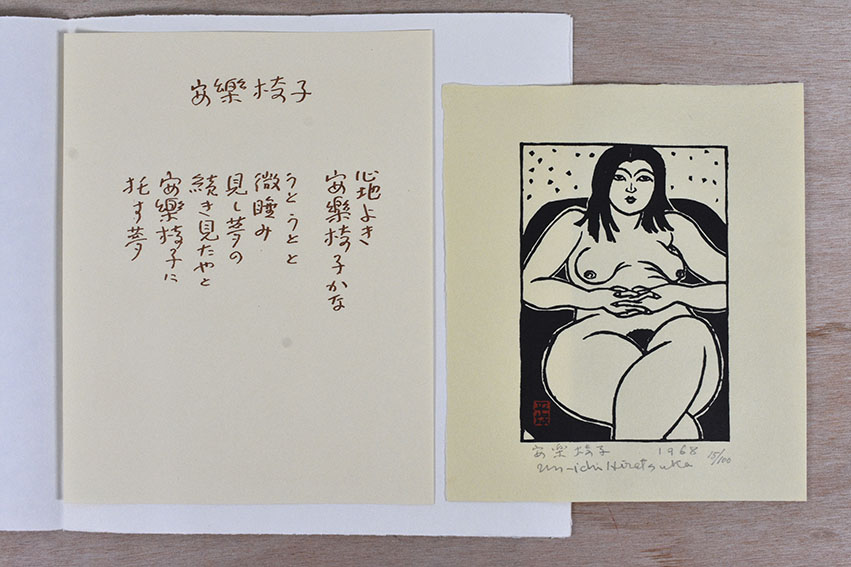 安樂椅子
心地よき
安樂椅子かな
うとうとと
微睡み
見し夢の
続き見たやと
安樂椅子に
托す夢
安樂椅子 1968 15/100
Un-ichi Hiratsuka